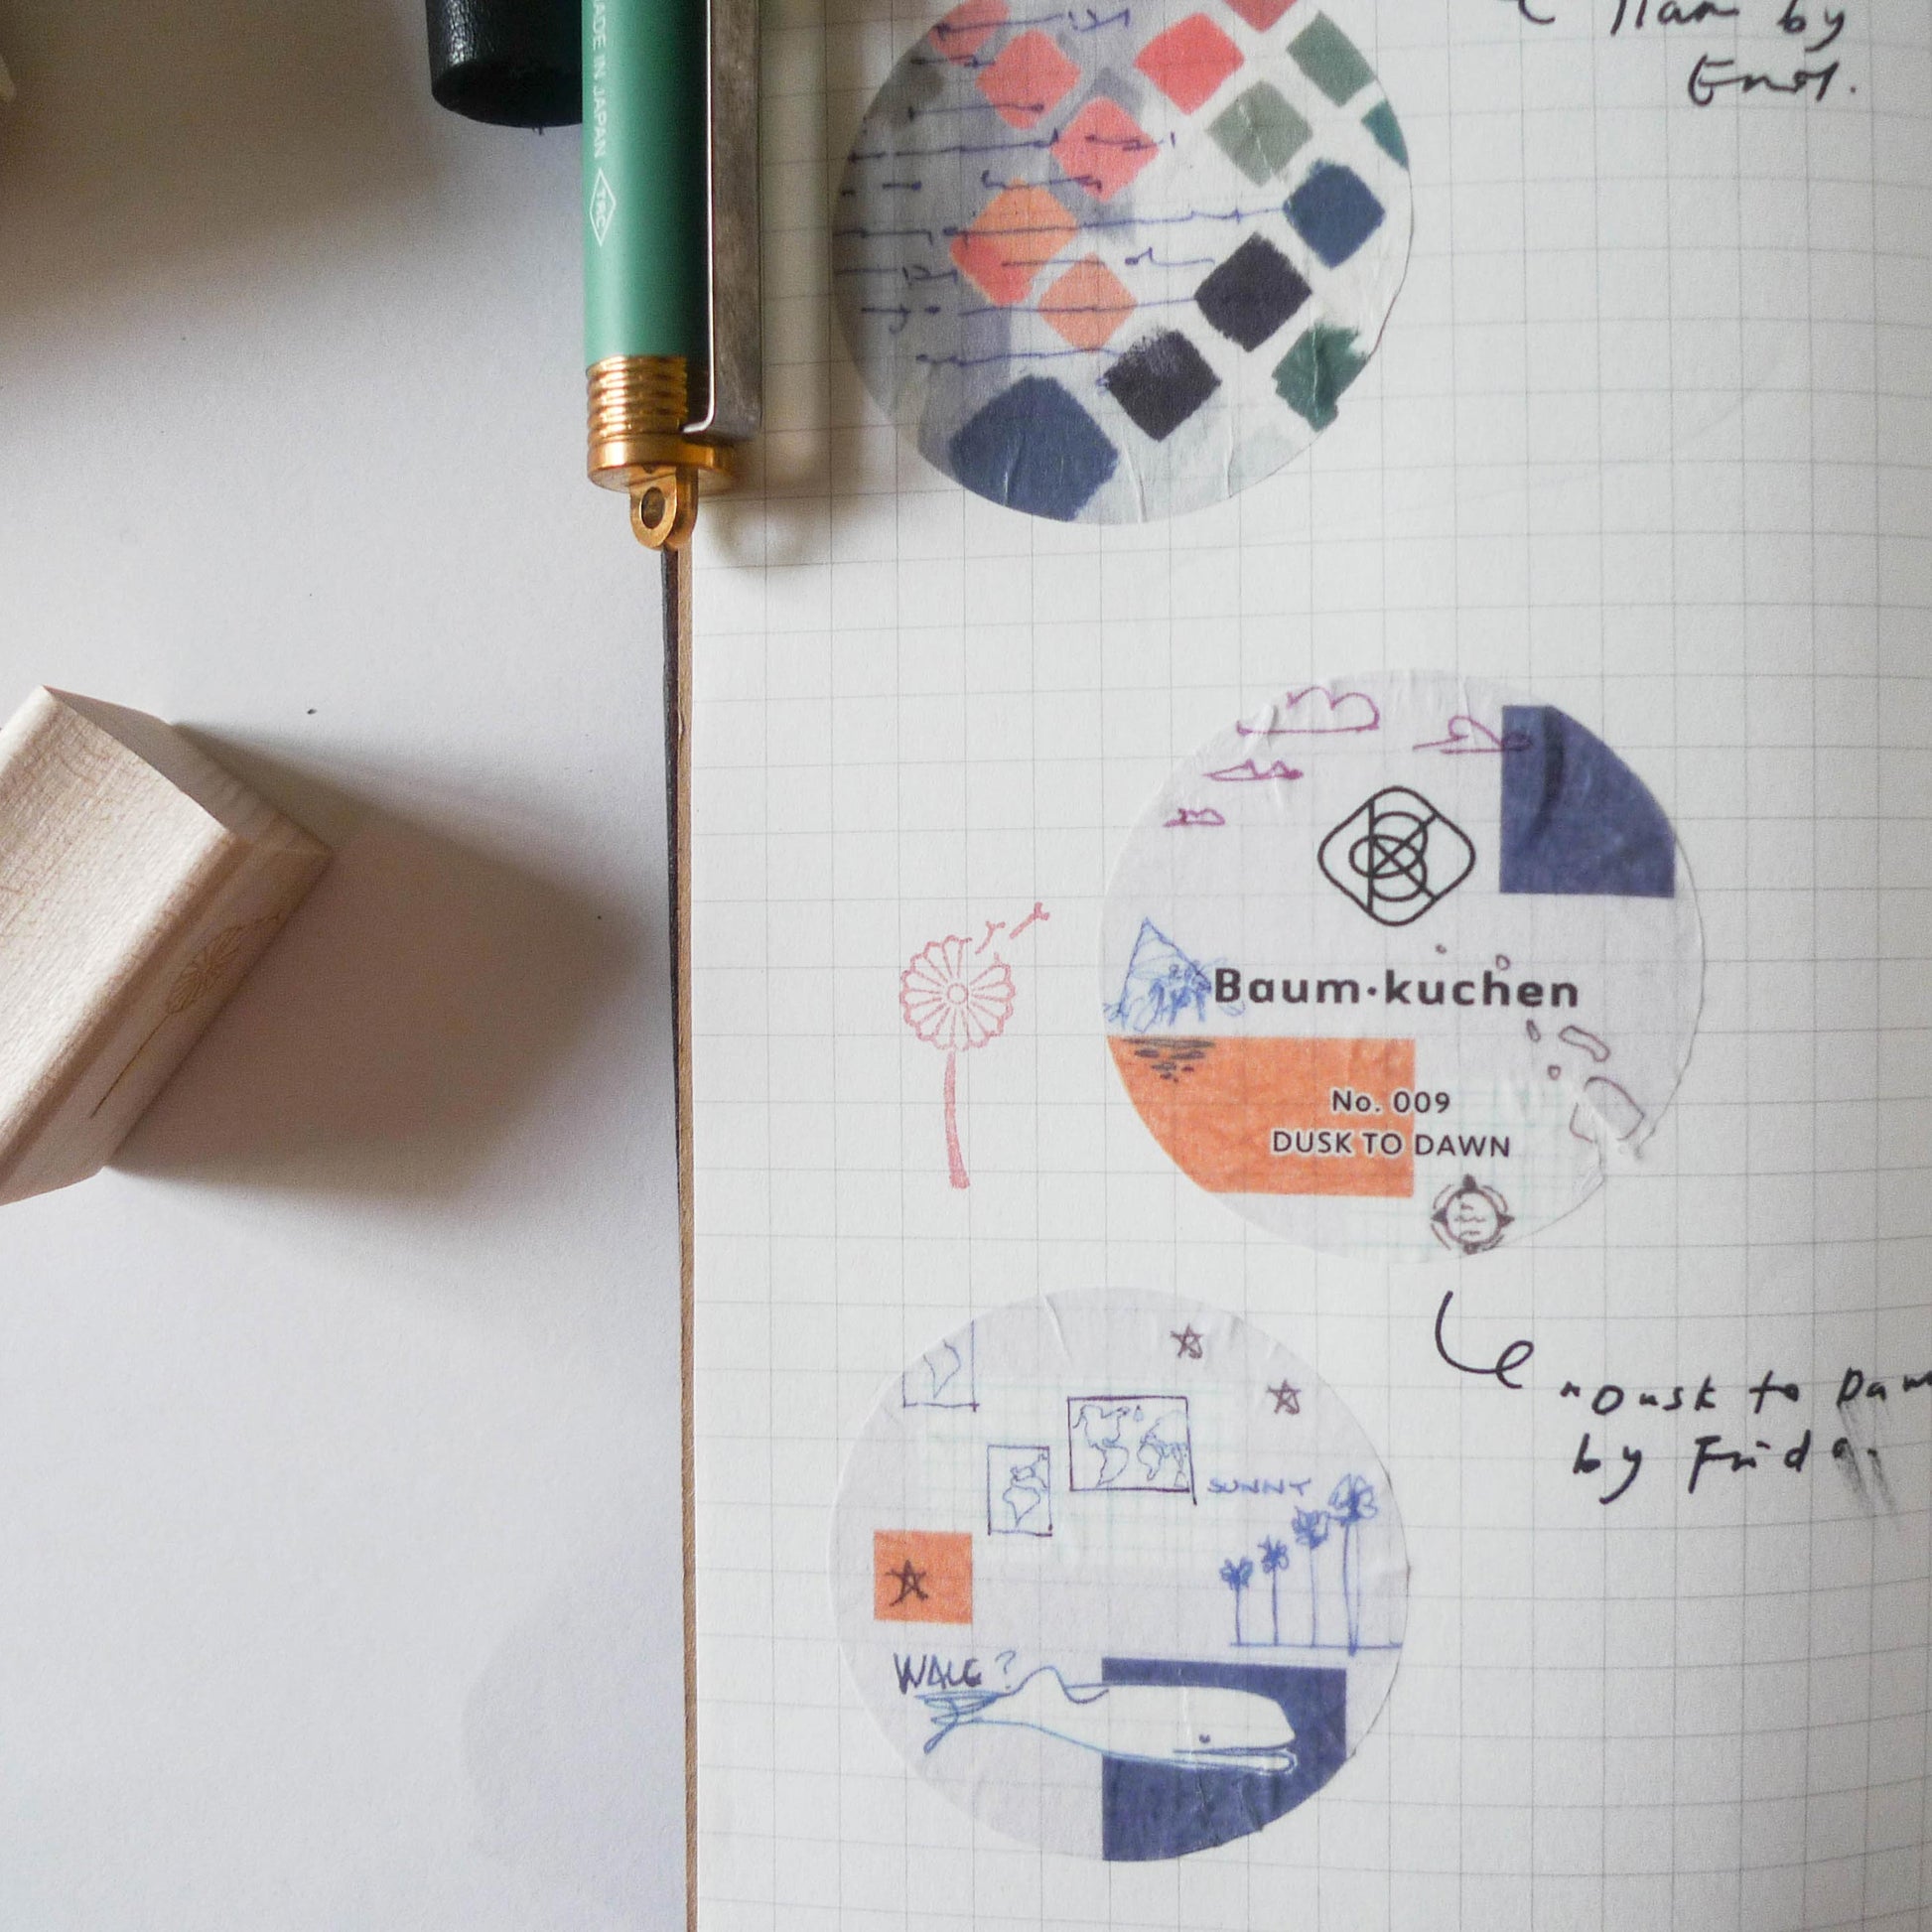 MADE IN JAPAN
TRC
by
Baum·kuchen
No. 009
DUSK TO DAWN
"Dusk to Daw
by Frida.
SUNNY
WALE?